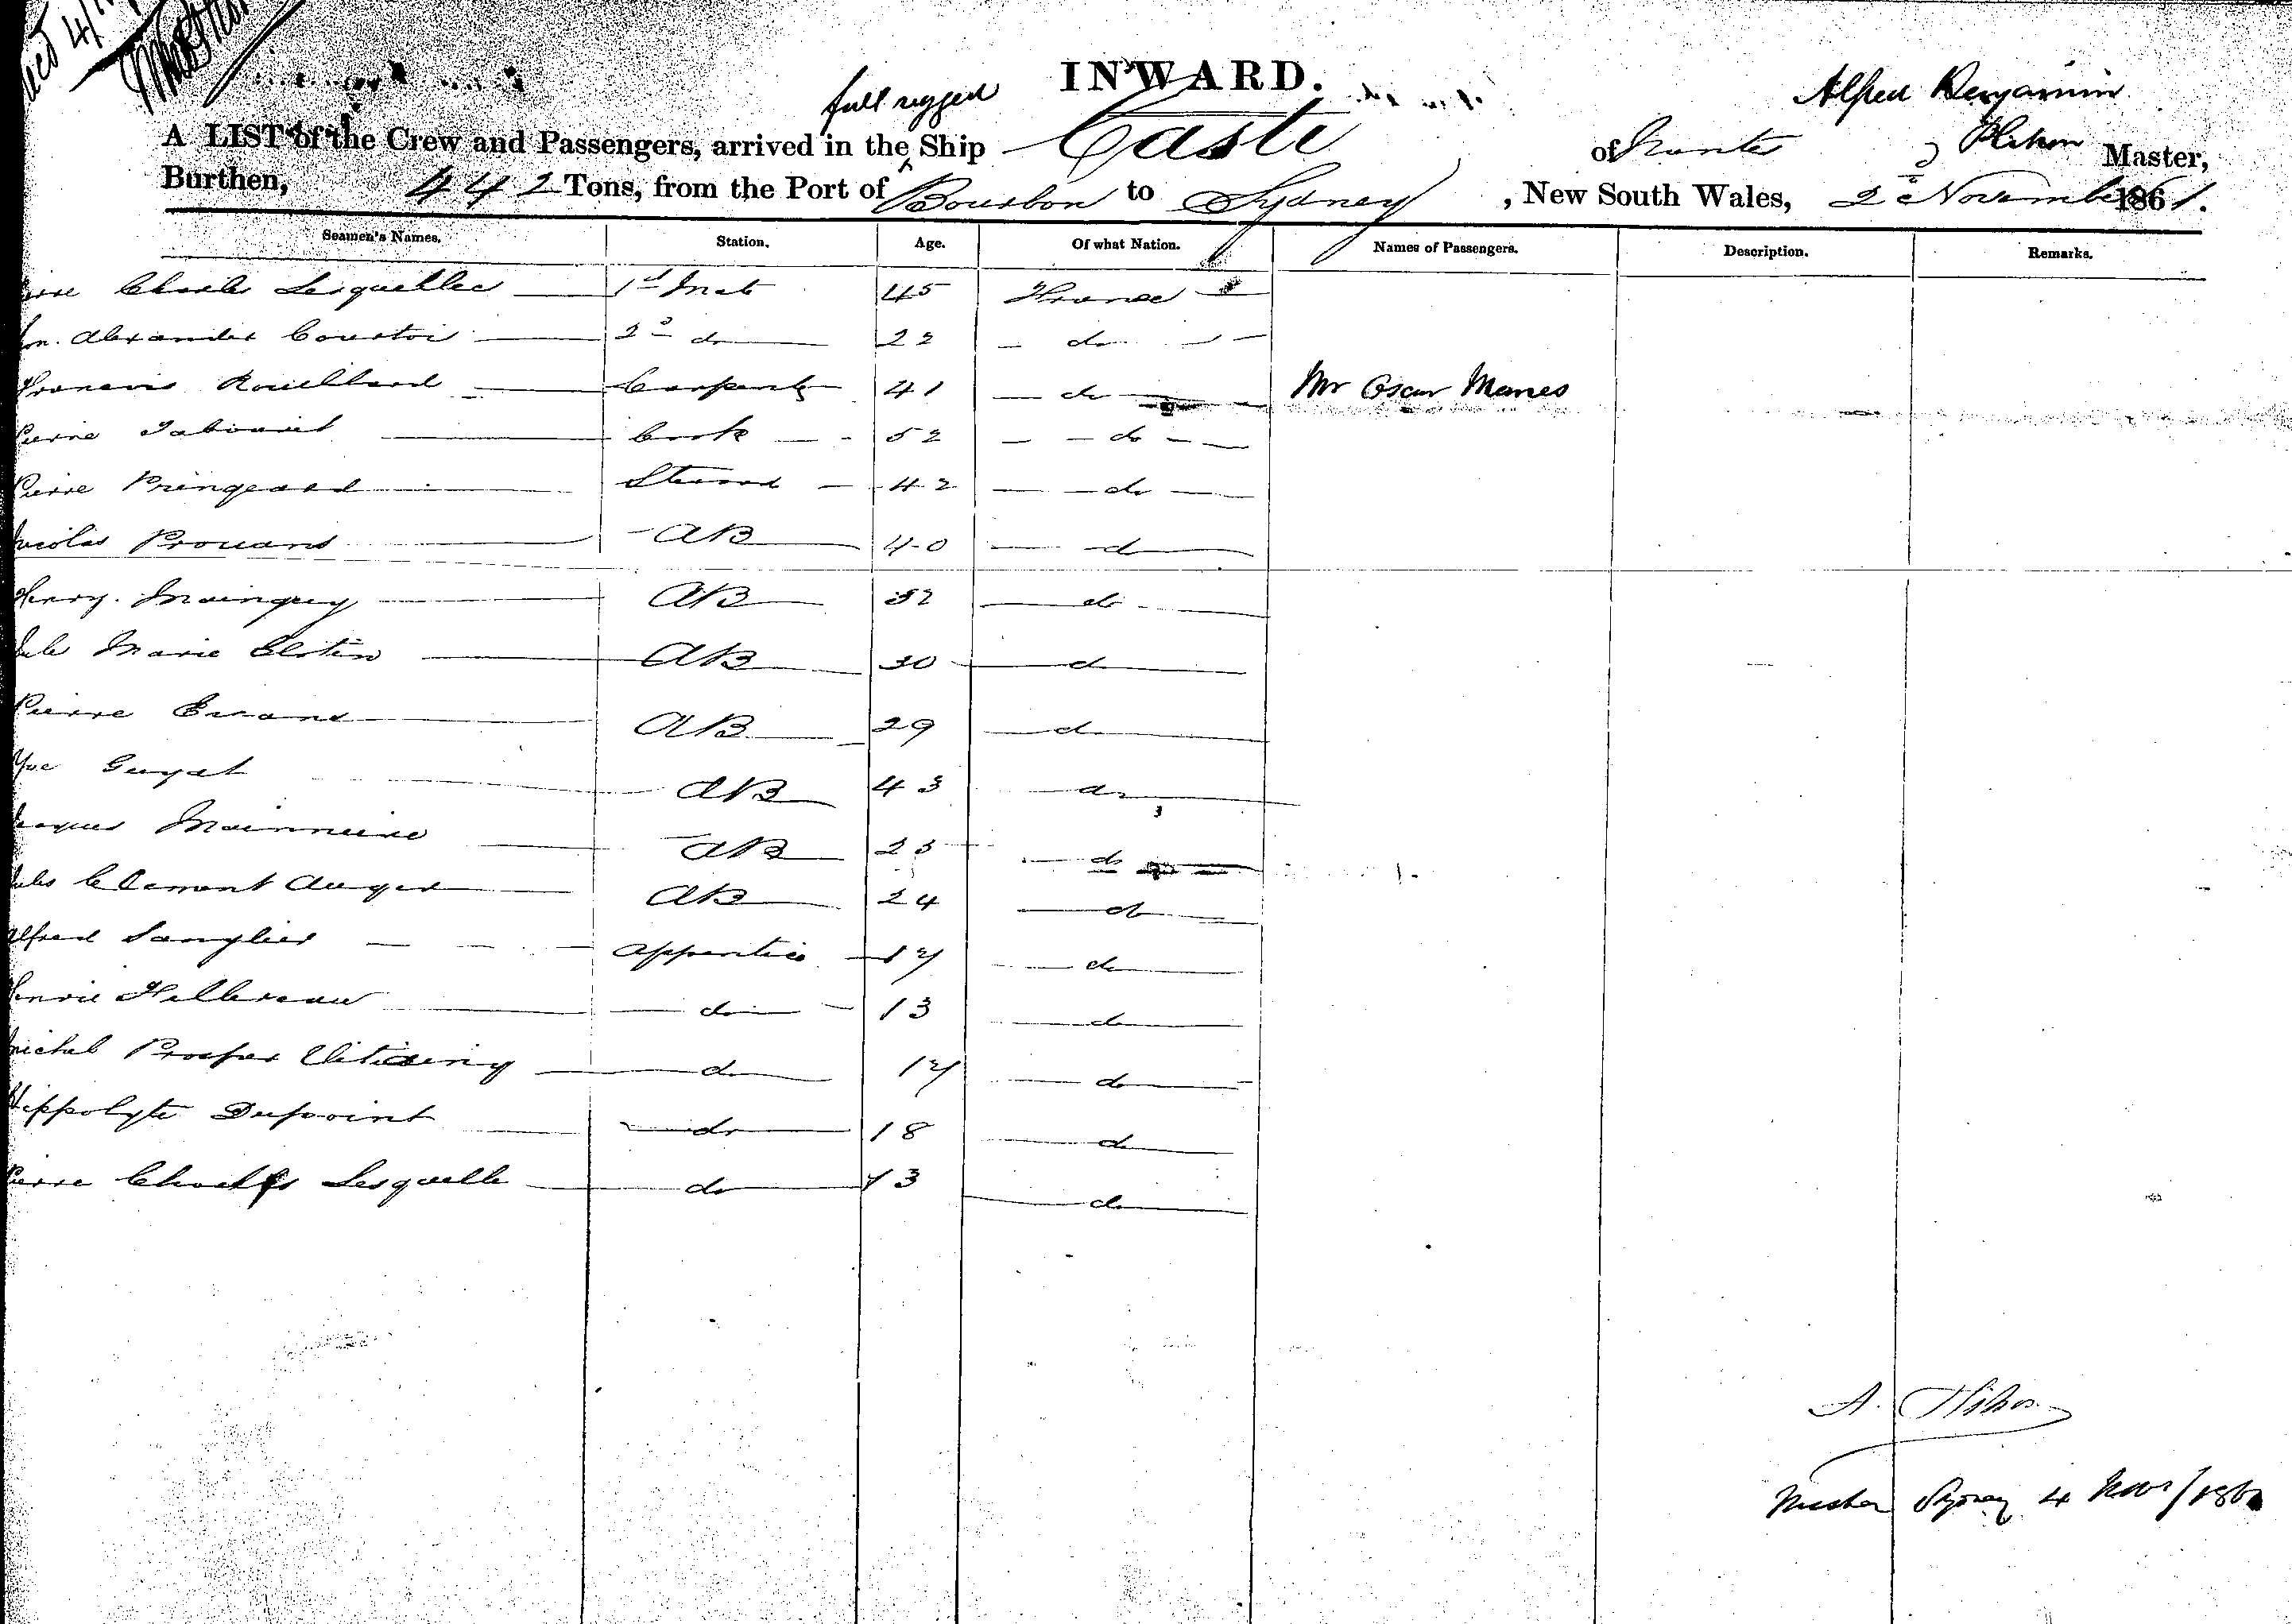 INWARD.
full rigged
Alfred Benjamin
A LIST of the Crew and Passengers, arrived in the Ship Casti of Nantes Master,
Burthen, 442 Tons, from the Port of Bourbon to Sydney , New South Wales, 2 November 1861.
Seamen's Names. Station. Age. Of what Nation. Names of Passengers. Description. Remarks.
Charles Lesquellec 1st Mate 45 France
Alexander 2d do 22 do
Francois Rouillard Carpenter 41 do Mr Oscar Manes
Pierre Cook 52 do
Pierre Pringeard Steward 42 do
Nicolas Prouans AB 40 do
Henry Mainguy AB 32 do
Marie AB 30 do
Pierre AB 29 do
Guyat AB 43 do
AB 23 do
Jules Clement Auger AB 24 do
Alfred Sanglier apprentice 17 do
do 13 do
Michel Prosper do 17 do
Hippolyte Dupoint do 18 do
Pierre Charles Lesquelle do 13 do
A.
Master Sydney 4 Novr/186